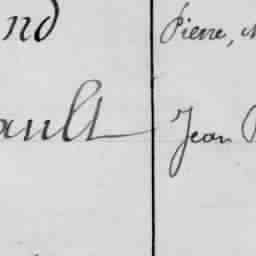 nd Pierre,
ault Jean